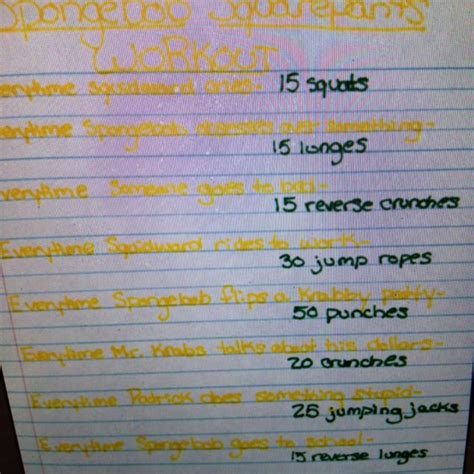 Spongebob Squarepants
Workout
everytime squidward cries- 15 squats
everytime Spongebob obsesses over something-
15 lunges
everytime Someone goes to bed-
15 reverse crunches
Everytime Squidward rides to work-
30 jump ropes
Everytime Spongebob flips a Krabby patty-
50 punches
Everytime Mr. Krabs talks about his dollars-
20 crunches
Everytime Patrick does something stupid-
25 jumping jacks
Everytime Spongebob goes to school-
15 reverse lunges